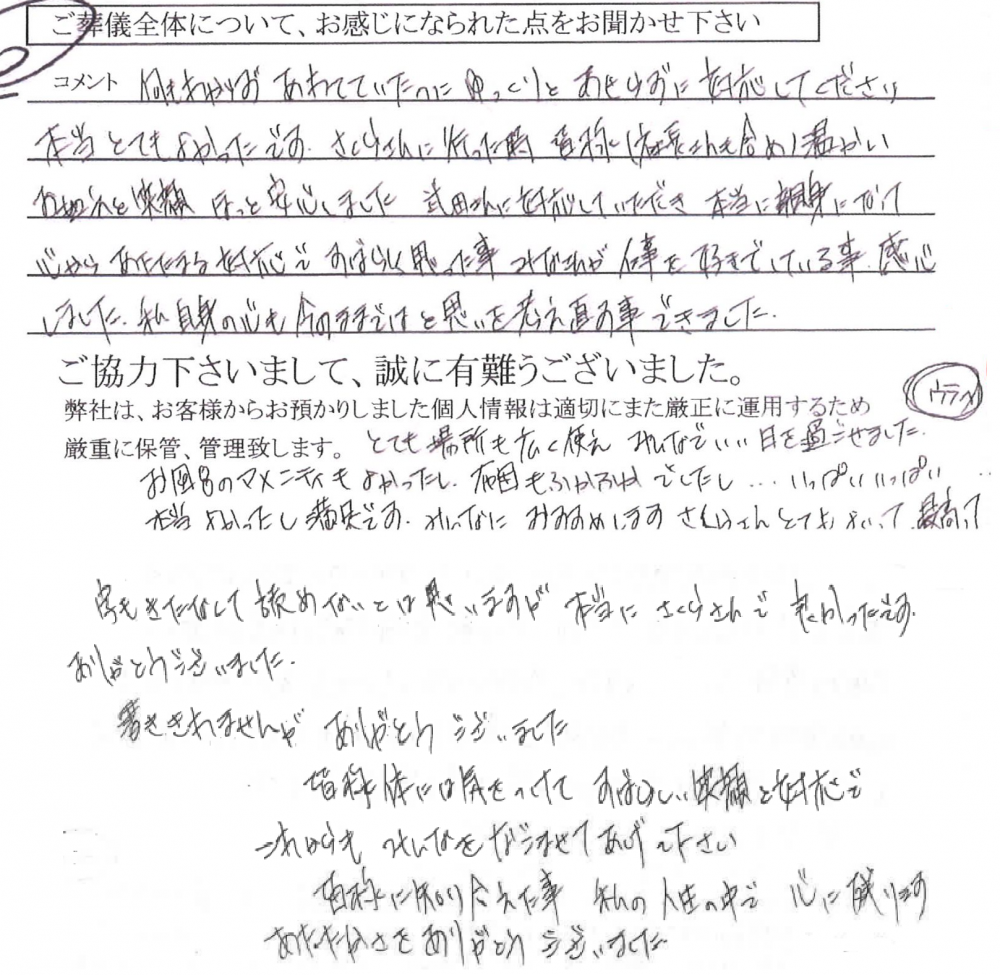 ご葬儀全体について、お感じになられた点をお聞かせ下さい
コメント 何もわからず あわてていたのに ゆっくりと あせらずに 対応してください
本当 とても よかったです. さくらさんに 行った時 皆様 (社長さんも含め) 温かい
お出迎えと笑顔 ほっと 安心しました 武田さんに対応していただき 本当に親身になって
心から あたたまる 対応で すばらしく思った事 みなさんが 仕事を 好きでしている事. 感心
しました. 私自身の心も 今のままではと思いを 考え直す事 できました.
ご協力下さいまして、誠に有難うございました。
ウラへ
弊社は、お客様からお預かりしました個人情報は適切にまた厳正に運用するため
厳重に保管、管理致します。 とても 場所も 広く使え みんなで いい 日を過ごせました.
お風呂のアメニティも よかったし. 布団もふかふか でしたし ... いっぱい いっぱい ...
本当 よかったし 満足です. みんなに おすすめします さくらさん とても よいって. 最高って
字もきたなくて 読めないとは思いますが 本当に さくらさんで 良かったです.
ありがとうございました.
書ききれませんが ありがとうございました
皆様 体には気をつけて すばらしい 笑顔と対応で
これからも みんなを なごませてあげて下さい
皆様に知り合えた事 私の 人生の中で 心に残ります
あたたかさを ありがとうございました